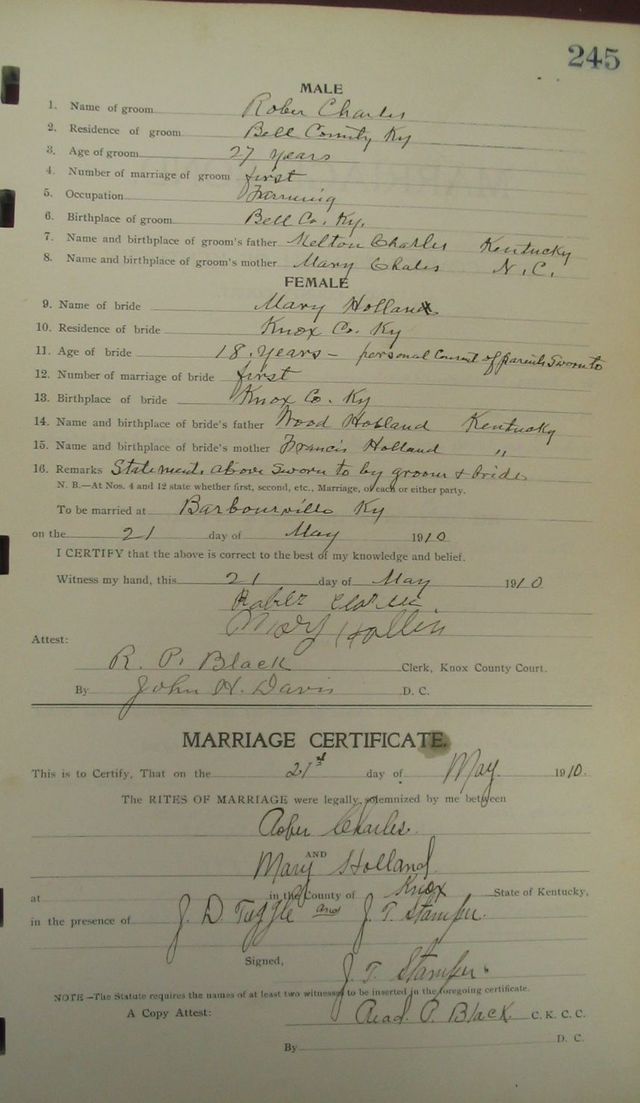 245
MALE
1. Name of groom Rober Charles
2. Residence of groom Bell County Ky
3. Age of groom 27 years
4. Number of marriage of groom first
5. Occupation Farming
6. Birthplace of groom Bell Co. Ky.
7. Name and birthplace of groom's father Melton Charles Kentucky
8. Name and birthplace of groom's mother Mary Chales N.C.
FEMALE
9. Name of bride Mary Holland
10. Residence of bride Knox Co. Ky
11. Age of bride 18. years – personal Consent of parents Sworn to
12. Number of marriage of bride first
13. Birthplace of bride Knox Co. Ky
14. Name and birthplace of bride's father Wood Holland Kentucky
15. Name and birthplace of bride's mother Francis Holland "
16. Remarks Statements above Sworn to by groom & bride
N. B.—At Nos. 4 and 12 state whether first, second, etc., Marriage, of each or either party.
To be married at Barbourville Ky
on the 21 day of May 1910
I CERTIFY that the above is correct to the best of my knowledge and belief.
Witness my hand, this 21 day of May 1910
Mary Hollin
Attest:
R. P. Black Clerk, Knox County Court.
By John H. Davis D. C.
MARRIAGE CERTIFICATE.
This is to Certify, That on the 21st day of May. 1910.
The RITES OF MARRIAGE were legally solemnized by me between
Rober Charles.
AND
Mary Holland
at in the County of Knox State of Kentucky,
in the presence of J. D. Tuggle and J. T. Stamper.
Signed,
J. T. Stamper.
NOTE—The Statute requires the names of at least two witnesses to be inserted in the foregoing certificate.
A Copy Attest: Read. P. Black. C. K. C. C.
By D. C.